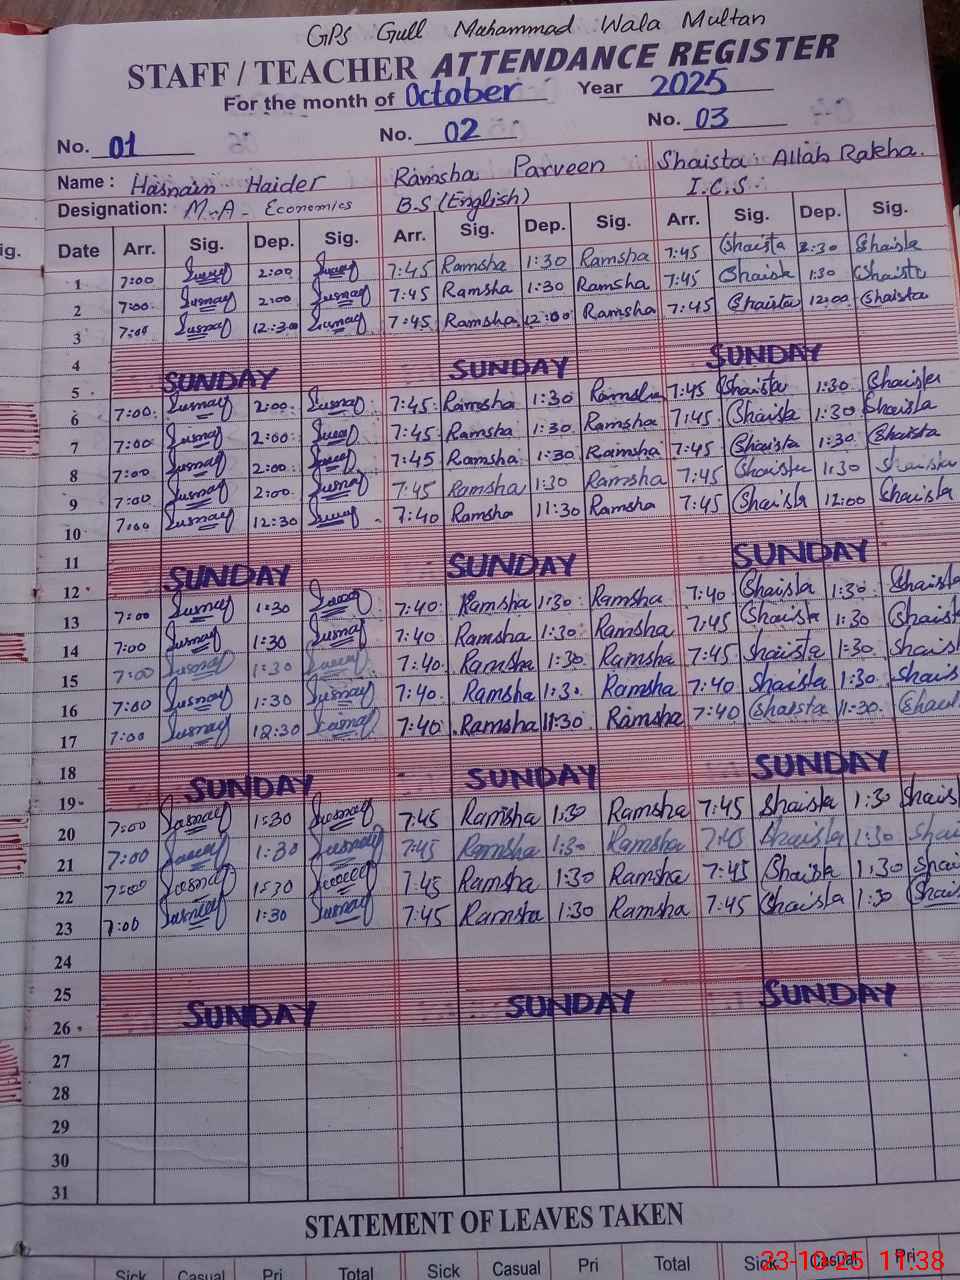 GPS Gull Muhammad Wala Multan
STAFF / TEACHER ATTENDANCE REGISTER
For the month of October Year 2025
No. 01 No. 02 No. 03
Name : Hasnain Haider Ramsha Parveen Shaista Allah Rakha.
Designation: M.A- Economics B.S (English) I.C.S.
ig. Date Arr. Sig. Dep. Sig. Arr. Sig. Dep. Sig. Arr. Sig. Dep. Sig.
1 7:00 2:00 7:45 Ramsha 1:30 Ramsha 7:45 Shaista 2:30 Shaista
2 7:00 2:00 7:45 Ramsha 1:30 Ramsha 7:45 Shaista 1:30 Shaista
3 7:00 12:30 7:45 Ramsha 12:00 Ramsha 7:45 Shaista 12:00 Shaista
4
5 SUNDAY SUNDAY SUNDAY
6 7:00 2:00 7:45 Ramsha 1:30 Ramsha 7:45 Shaista 1:30 Shaista
7 7:00 2:00 7:45 Ramsha 1:30 Ramsha 7:45 Shaista 1:30 Shaista
8 7:00 2:00 7:45 Ramsha 1:30 Ramsha 7:45 Shaista 1:30 Shaista
9 7:00 2:00 7:45 Ramsha 1:30 Ramsha 7:45 Shaista 1:30 Shaista
10 7:00 12:30 7:40 Ramsha 11:30 Ramsha 7:45 Shaista 12:00 Shaista
11
12 SUNDAY SUNDAY SUNDAY
13 7:00 1:30 7:40 Ramsha 1:30 Ramsha 7:40 Shaista 1:30 Shaista
14 7:00 1:30 7:40 Ramsha 1:30 Ramsha 7:45 Shaista 1:30 Shaist
15 7:00 1:30 7:40 Ramsha 1:30 Ramsha 7:45 Shaista 1:30 Shais
16 7:00 1:30 7:40 Ramsha 1:30 Ramsha 7:40 Shaista 1:30 Shais
17 7:00 12:30 7:40 Ramsha 11:30 Ramsha 7:40 Shaista 11:30 Shais
18
19 SUNDAY SUNDAY SUNDAY
20 7:00 1:30 7:45 Ramsha 1:30 Ramsha 7:45 Shaista 1:30 Shais
21 7:00 1:30 7:45 Ramsha 1:30 Ramsha 7:45 Shaista 1:30 Shai
22 7:00 1:30 7:45 Ramsha 1:30 Ramsha 7:45 Shaista 1:30 Shai
23 7:00 1:30 7:45 Ramsha 1:30 Ramsha 7:45 Shaista 1:30 Shais
24
25
26 SUNDAY SUNDAY SUNDAY
27
28
29
30
31
STATEMENT OF LEAVES TAKEN
Sick Casual Pri Total Sick Casual Pri Total Sick Casual Pri
23-10-25 11:38